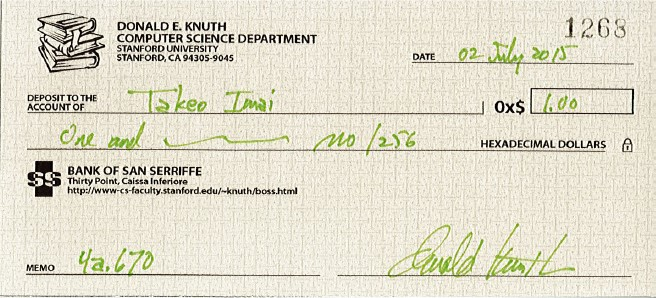 1268
DONALD E. KNUTH
COMPUTER SCIENCE DEPARTMENT
STANFORD UNIVERSITY
STANFORD, CA 94305-9045
DATE 02 July 2015
DEPOSIT TO THE
ACCOUNT OF Takeo Imai 0x$ 1.00
One and no/256 HEXADECIMAL DOLLARS
SS BANK OF SAN SERRIFFE
Thirty Point, Caissa Inferiore
http://www-cs-faculty.stanford.edu/~knuth/boss.html
MEMO 4a.670 Donald Knuth